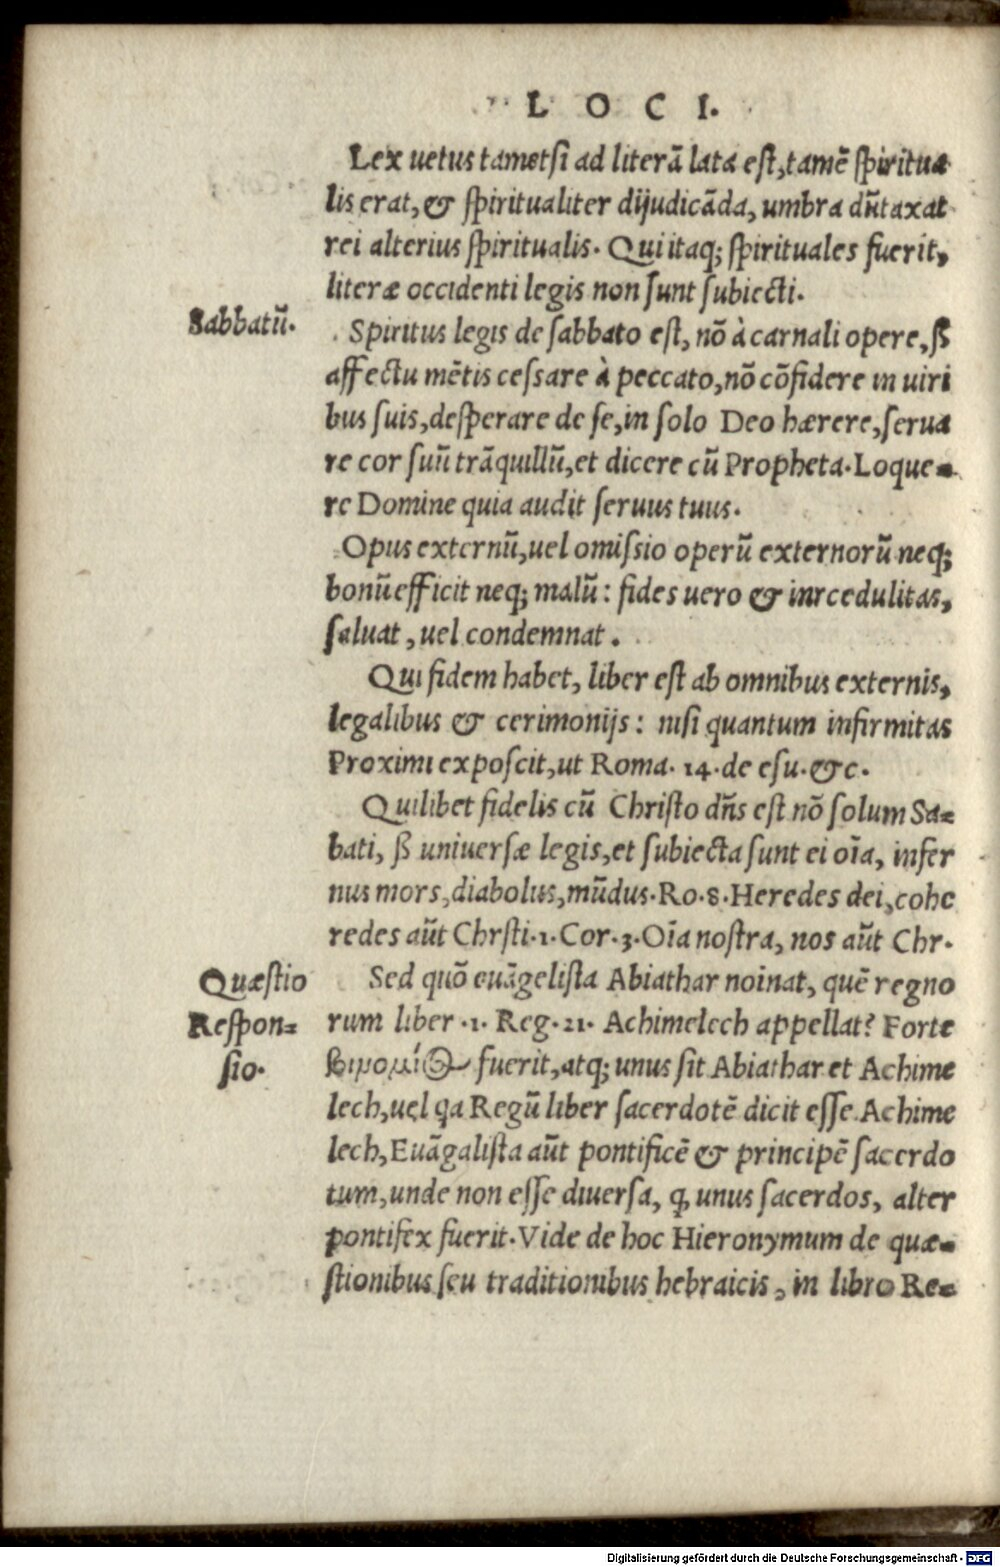 L O C I.
Lex uetus tametsi ad literā lata est, tamē spiritua
lis erat, & spiritualiter dijudicāda, umbra dūtaxat
rei alterius spiritualis. Qui itaq; spirituales fuerit,
literæ occidenti legis non sunt subiecti.
Sabbatū.
Spiritus legis de sabbato est, nō à carnali opere, ß
affectu mētis cessare à peccato, nō cōfidere in uiri
bus suis, desperare de se, in solo Deo hærere, serua
re cor suū trāquillū, et dicere cū Propheta. Loque-
re Domine quia audit seruus tuus.
Opus externū, uel omissio operū externorū neq;
bonū efficit neq; malū: fides uero & inrcedulitas,
saluat, uel condemnat.
Qui fidem habet, liber est ab omnibus externis,
legalibus & cerimonijs: nisi quantum infirmitas
Proximi exposcit, ut Roma. 14. de esu. &c.
Quilibet fidelis cū Christo dn̄s est nō solum Sa-
bati, ß uniuersæ legis, et subiecta sunt ei oīa, infer
nus mors, diabolus, mūdus. Ro. 8. Heredes dei, cohe
redes aūt Chrsti. 1. Cor. 3. Oīa nostra, nos aūt Chr.
Quæstio
Sed quō euāgelista Abiathar noinat, quē regno
Respon-
rum liber .1. Reg. 21. Achimelech appellat? Forte
sio.
fuerit, atq; unus sit Abiathar et Achime
lech, uel qa Regū liber sacerdotē dicit esse Achime
lech, Euāgalista aūt pontificē & principē sacerdo
tum, unde non esse diuersa, ꝙ unus sacerdos, alter
pontifex fuerit. Vide de hoc Hieronymum de quæ-
stionibus seu traditionibus hebraicis, in libro Re-
Digitalisierung gefördert durch die Deutsche Forschungsgemeinschaft - DFG